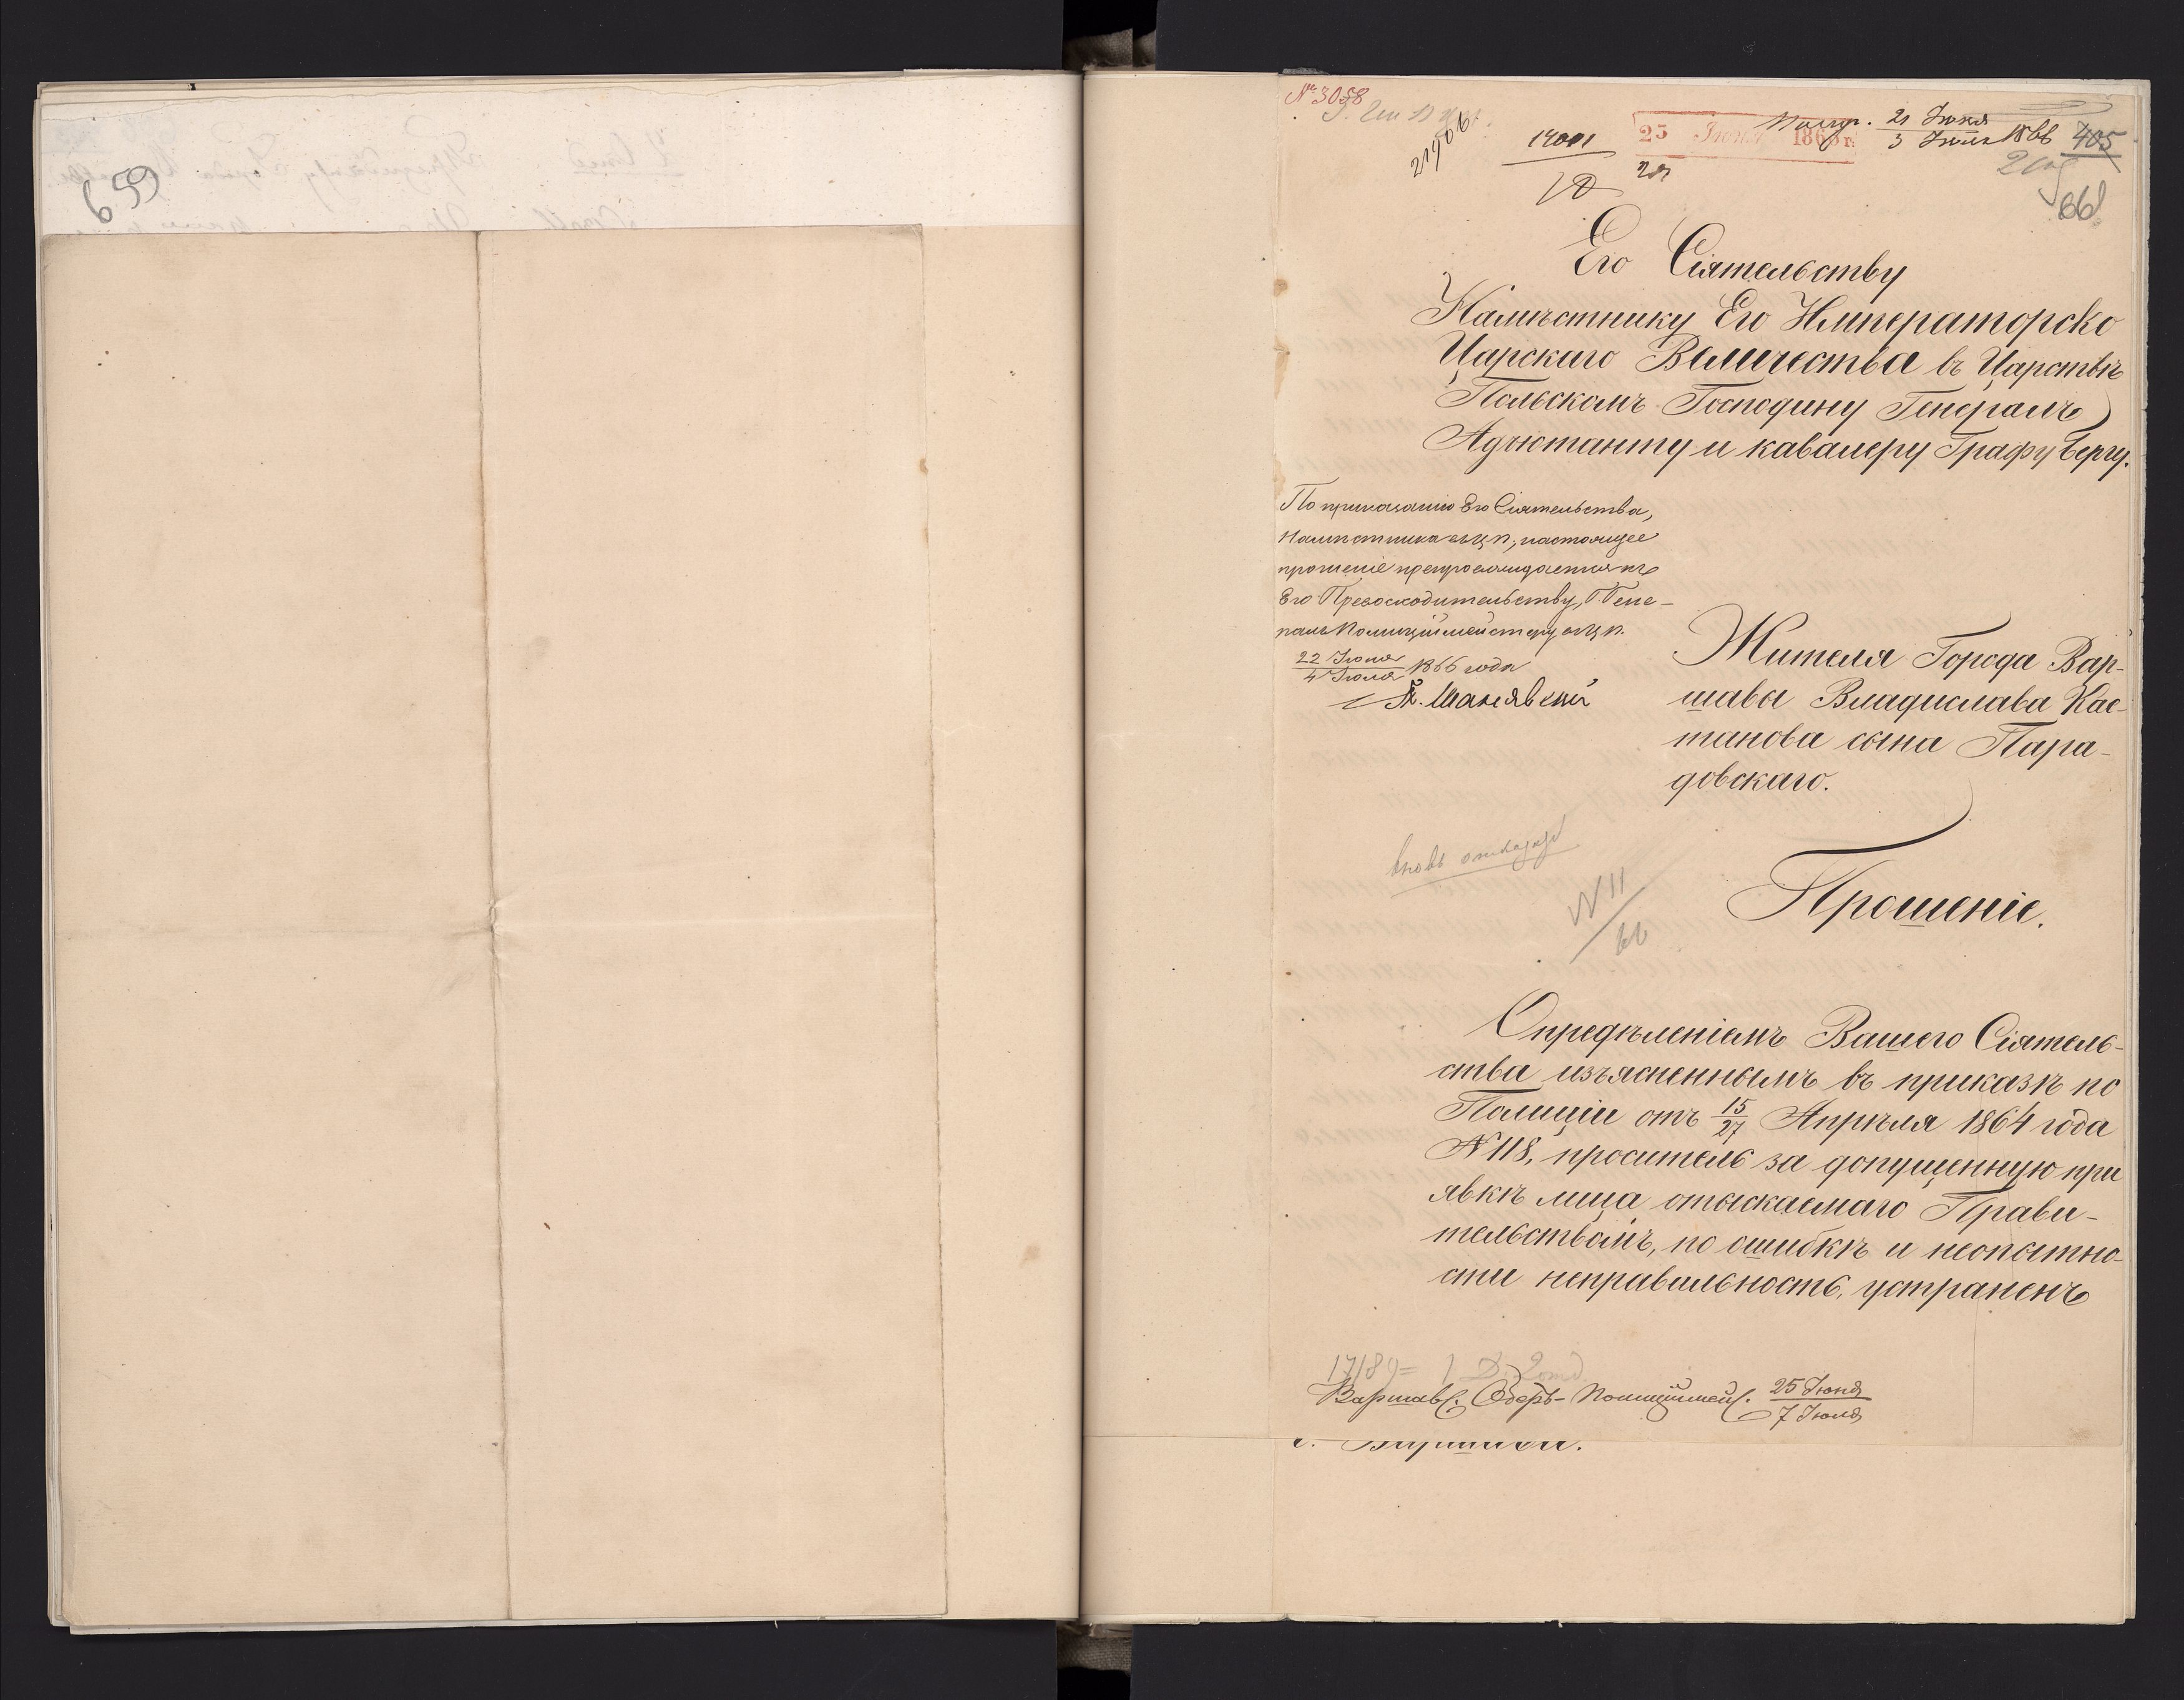 659
№ 3058
21906
19001
25 Іюня 1866 г.
Получ. 21 Іюня
3 Іюля 1866
405
661
Его Сіятельству
Намѣстнику Его Императорско
Царскаго Величества въ Царствѣ
Польскомъ Господину Генералъ
Адъютанту и кавалеру Графу Бергу.
По приказанію Его Сіятельства,
Намѣстника въ Ц. П., настоящее
прошеніе препровождается къ
Его Превосходительству, Г. Гене-
ралъ Полиціймейстеру въ Ц. П.
22 Іюня
4 Іюля 1866 года
Жителя Города Вар-
шавы Владислава Кае-
танова сына Пара-
довскаго.
вновь
N 11
66
Прошеніе.
Опредѣленіемъ Вашего Сіятель-
ства изъясненнымъ въ приказѣ по
Полиціи отъ 15/27 Апрѣля 1864 года
N 118, проситель за допущенную при
явкѣ лица отыскаемаго Прави-
тельствомъ, по ошибкѣ и неопытно-
сти неправильность, устраненъ
17189
Варшавс. Оберъ-Полиціймейс. 25 Іюня
7 Іюля